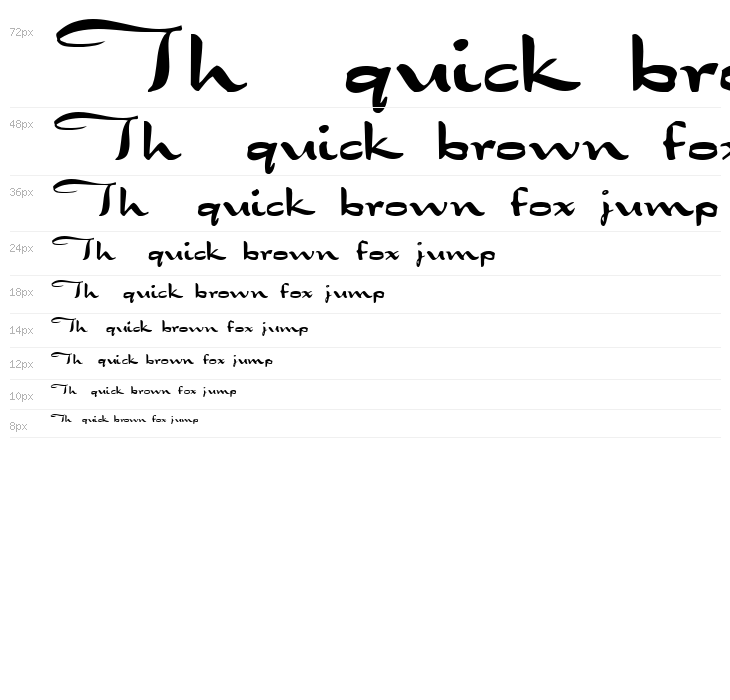 72px Th quick bro
48px Th quick brown fox
36px Th quick brown fox jump
24px Th quick brown fox jump
18px Th quick brown fox jump
14px Th quick brown fox jump
12px Th quick brown fox jump
10px Th quick brown fox jump
8px Th quick brown fox jump